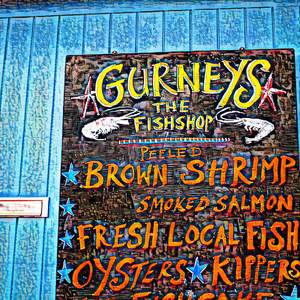 GURNEYS
THE
FISHSHOP
PEELED
BROWN SHRIMP
SMOKED SALMON
FRESH LOCAL FISH
OYSTERS KIPPERS